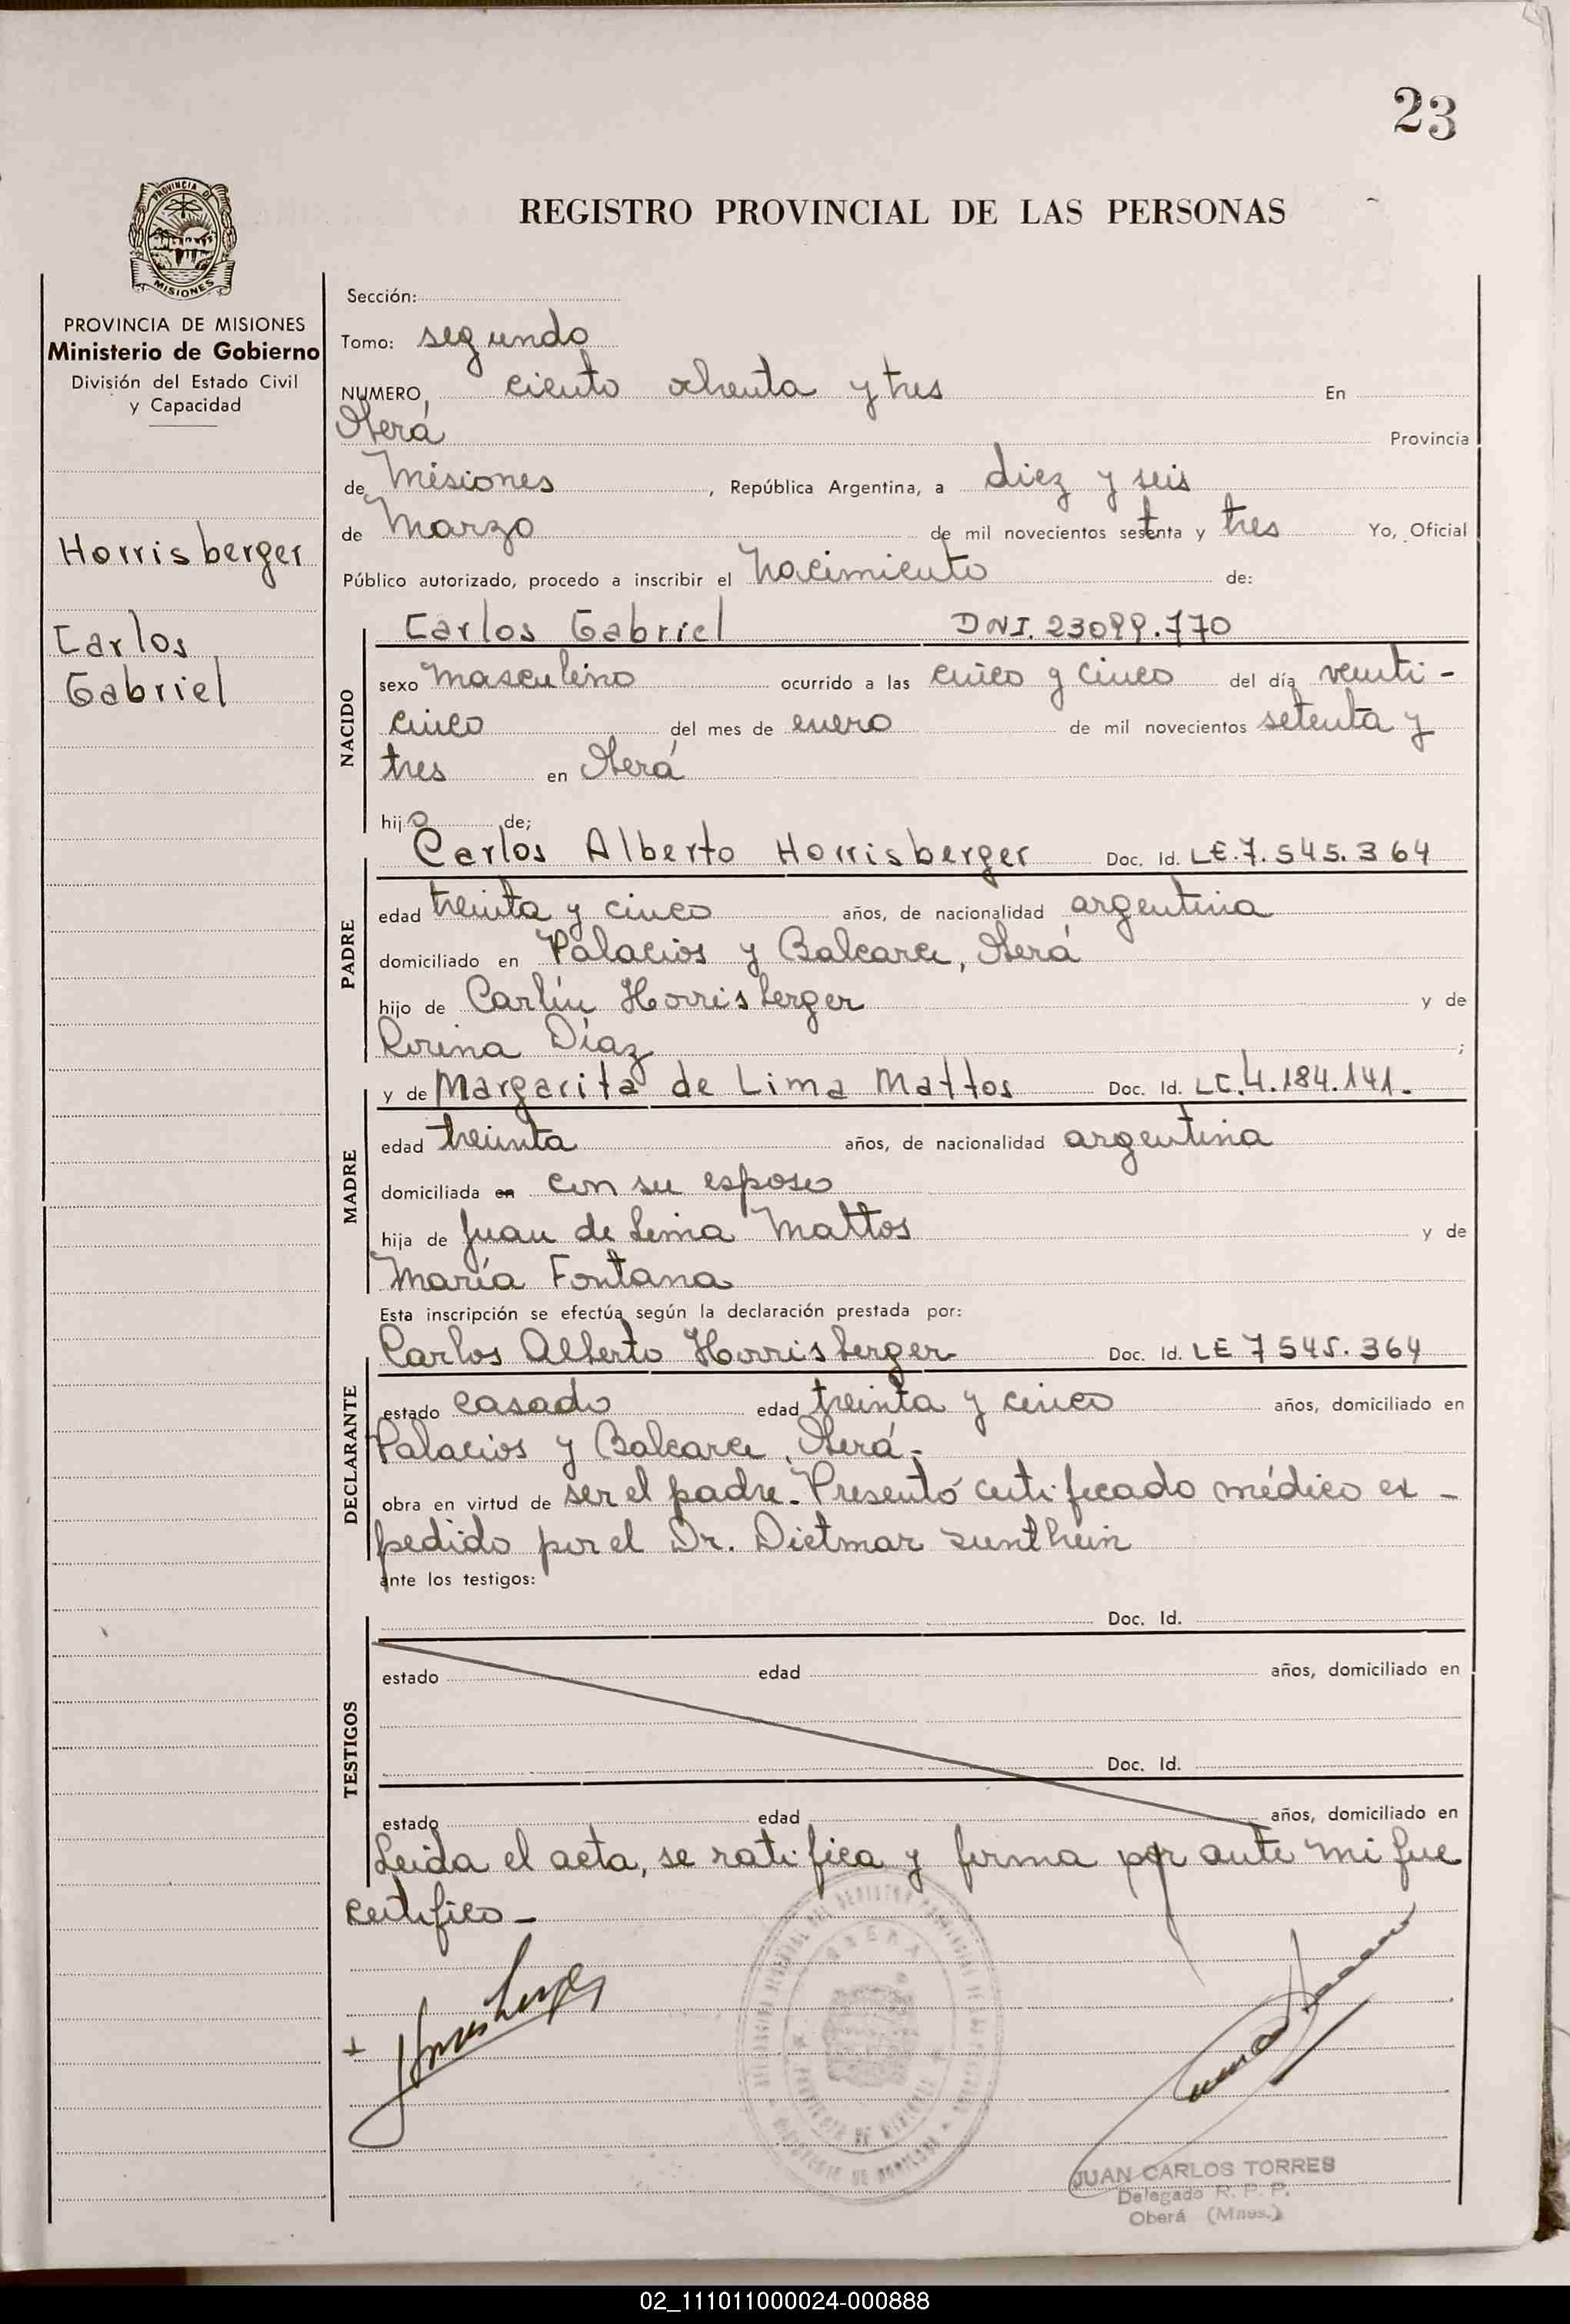 23
REGISTRO PROVINCIAL DE LAS PERSONAS
PROVINCIA DE
MISIONES
PROVINCIA DE MISIONES
Ministerio de Gobierno
División del Estado Civil
y Capacidad
Horrisberger
Carlos
Gabriel
Sección:
Tomo: segundo
NUMERO, ciento ochenta y tres En
Oberá Provincia
de Misiones, República Argentina, a diez y seis
de Marzo de mil novecientos setenta y tres Yo, Oficial
Público autorizado, procedo a inscribir el nacimiento de:
Carlos Gabriel DNI. 23099.770
NACIDO
sexo masculino ocurrido a las cinco y cinco del día veinti-
cinco del mes de enero de mil novecientos setenta y
tres en Oberá
hijo de;
Carlos Alberto Horrisberger Doc. Id. LE.7.545.364
PADRE
edad treinta y cinco años, de nacionalidad argentina
domiciliado en Palacios y Balcarce, Oberá
hijo de Carlín Horrisberger y de
Rosina Díaz ;
y de Margarita de Lima Mattos Doc. Id. LC.4.184.141.
MADRE
edad treinta años, de nacionalidad argentina
domiciliada en con su esposo
hija de Juan de Lima Mattos y de
María Fontana
Esta inscripción se efectúa según la declaración prestada por:
Carlos Alberto Horrisberger Doc. Id. LE 7545.364
DECLARANTE
estado casado edad treinta y cinco años, domiciliado en
Palacios y Balcarce, Oberá.
obra en virtud de ser el padre. Presentó certificado médico ex-
pedido por el Dr. Dietmar Sunthein
ante los testigos:
Doc. Id.
TESTIGOS
estado edad años, domiciliado en
Doc. Id.
estado edad años, domiciliado en
Leida el acta, se ratifica y firma por ante mi que
certifico-
JUAN CARLOS TORRES
Delegado R. P. P.
Oberá (Mnes.)
02_111011000024-000888